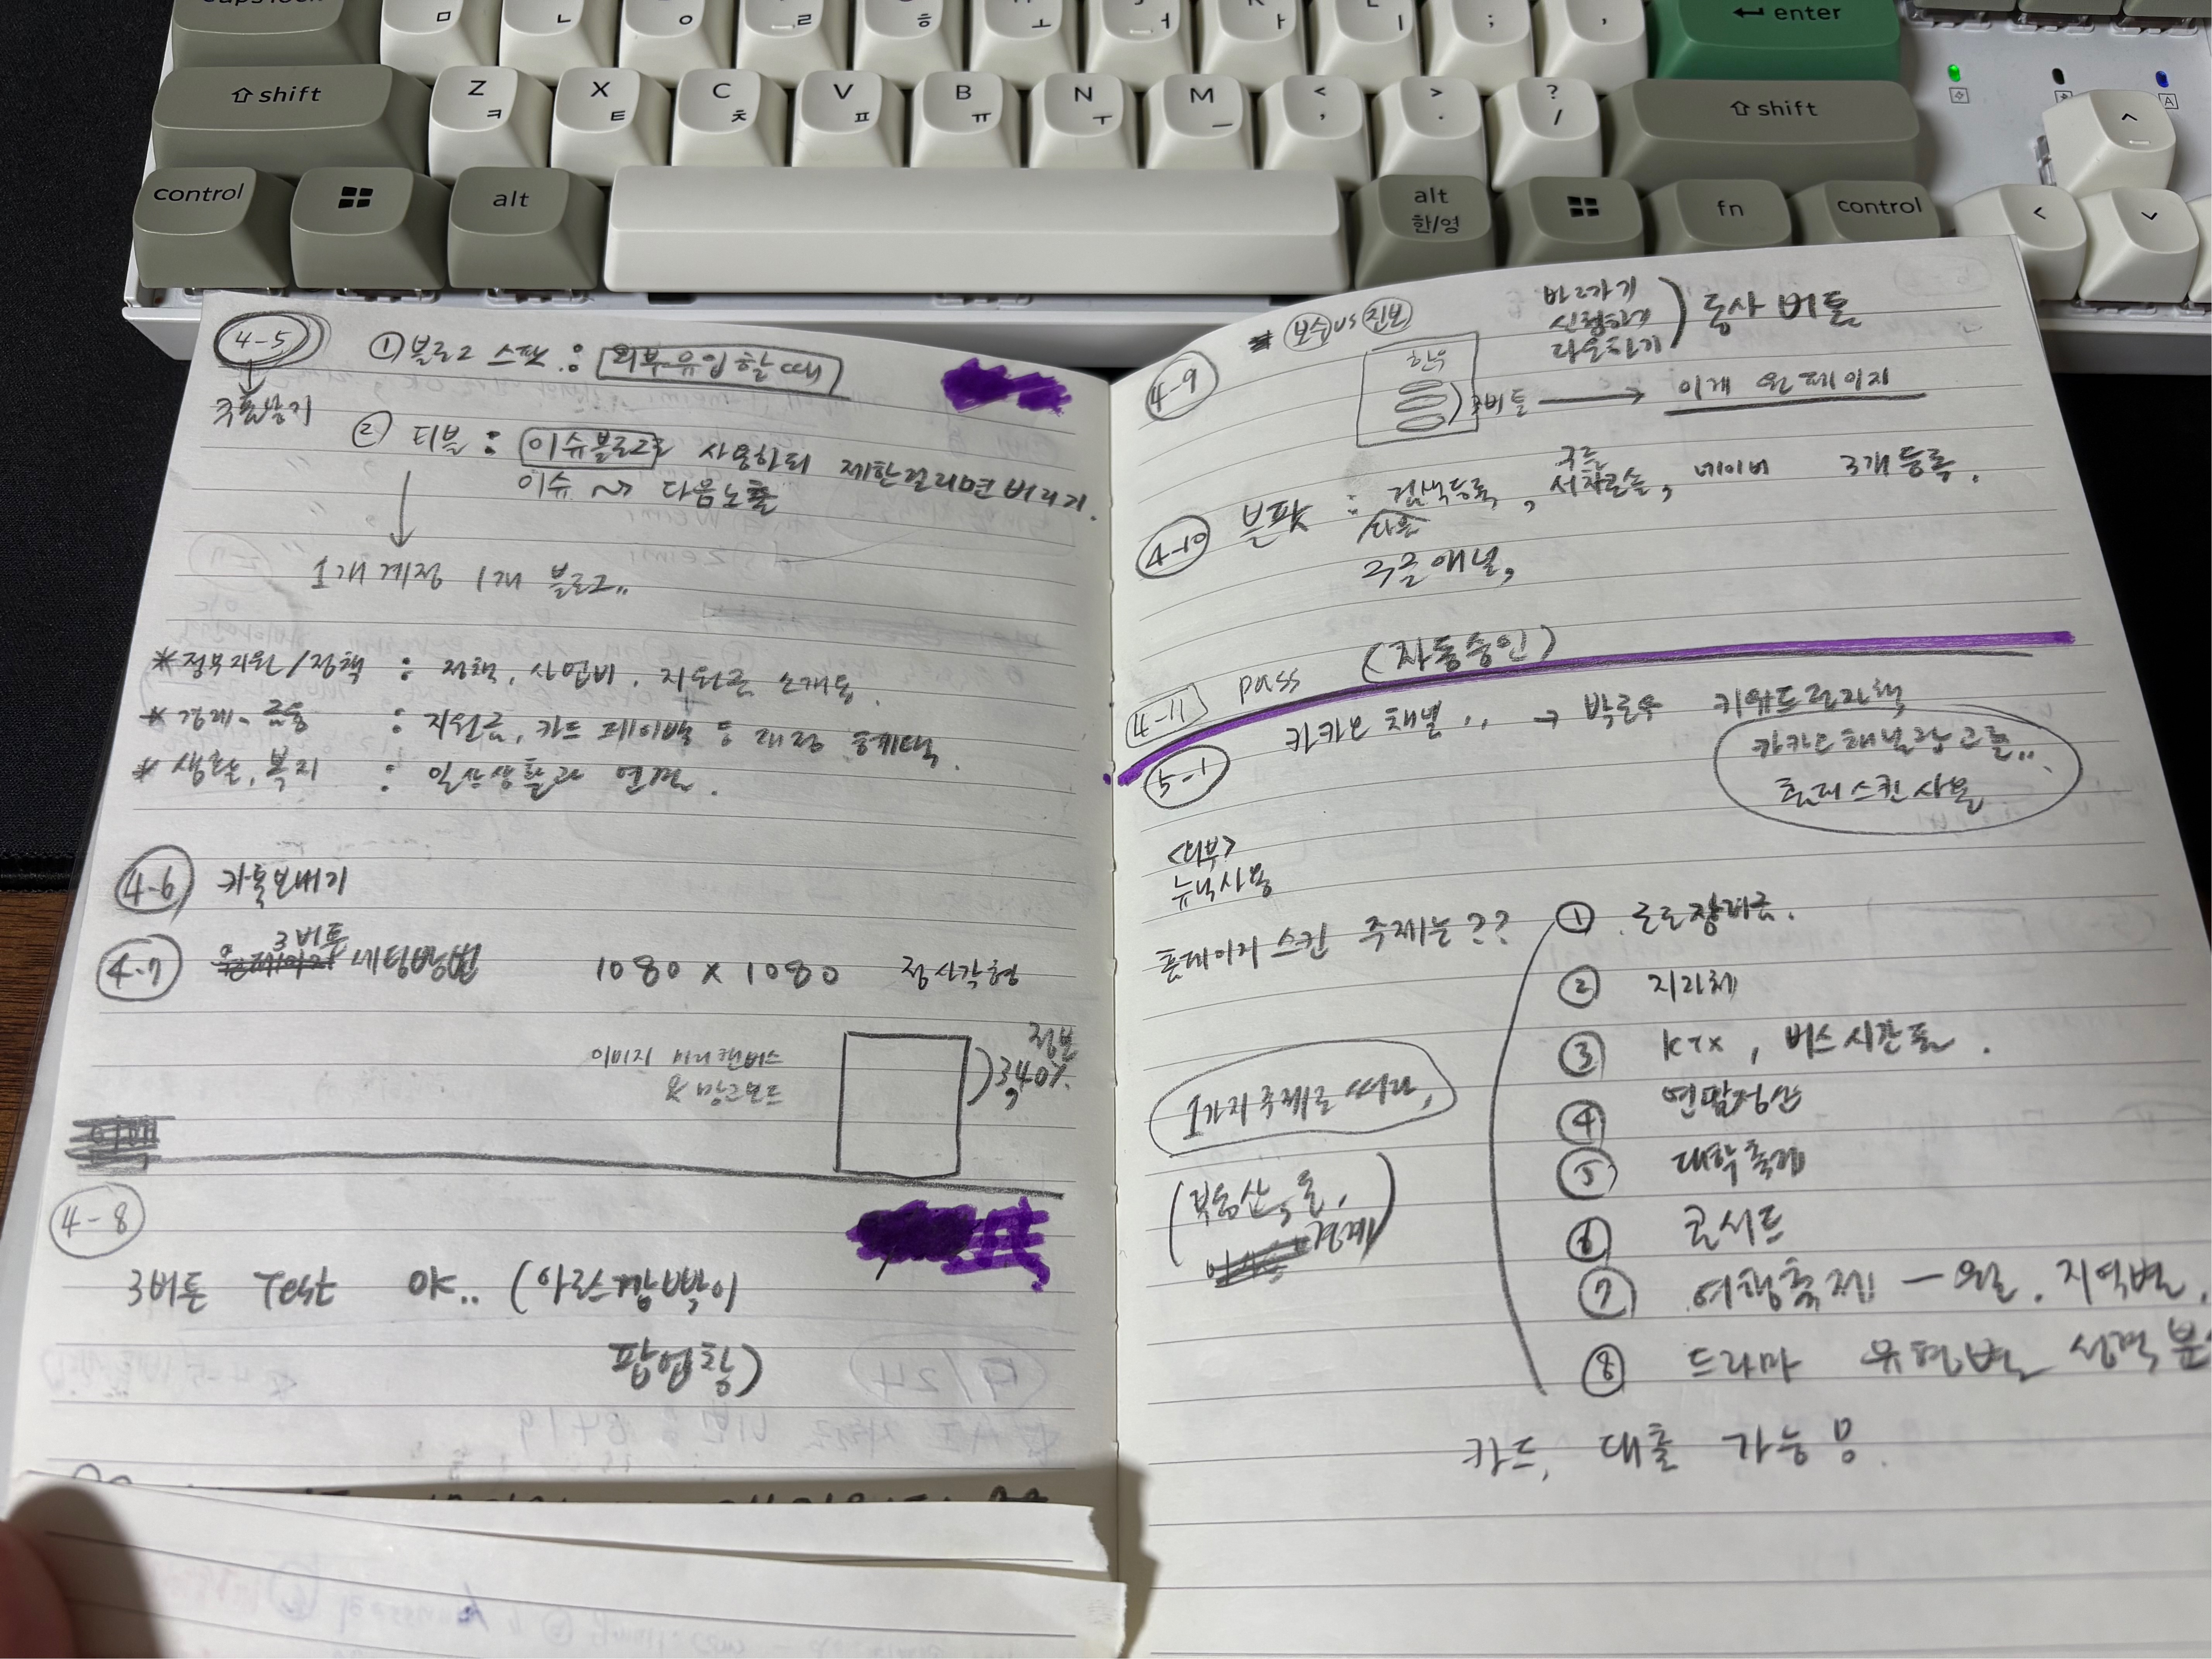 caps lock
enter
shift
Z ㅋ
X ㅌ
C ㅊ
V ㅍ
B ㅠ
N ㅜ
M ㅡ
< ,
> .
? /
shift
control
alt
alt 한/영
fn
control
4-5
① 블로그 스팟 : 외부유입할때
② 티블 : 이슈블로그로 사용하되 제한걸리면 버리기.
이슈 ~> 다음노출
1개 계정 1개 블로그..
*정부지원/정책 : 정책, 사업비, 지원금 소개등.
* 경제-금융 : 지원금, 카드 페이백 등 재정 혜택.
* 생활, 복지 : 일상생활과 연관.
4-6 카톡보내기
4-7 3버튼 세팅방법 1080 x 1080 정사각형
이미지 미리캔버스
& 망고보드
정보
340%
4-8
3버튼 Test OK.. (아로스깜빡이
팝업창)
* 보수 vs 진보
바로가기
신청하기
다운하기
동사 버튼
4-9
3버튼 → 이게 원페이지
4-10 본팟 : 검색등록, 구글 서치콘솔, 네이버 3개 등록.
다음
구글애널,
4-11 pass (자동승인)
5-1 카카오 채널 .. → 박로우 키워드린자책
카카오 채널광고를..
홈페스킨 사용
<외부>
뉴닉사용
홈페이지 스킨 주제는??
① 근로장려금.
② 지자체
③ KTX, 버스시간표.
④ 연말정산
⑤ 대학축제
⑥ 콘서트
⑦ 여행축제 - 월, 지역별,
⑧ 드라마 유형별 성격
1가지 주제로 써라,
(부동산, 돈,
경제)
카드, 대출 가능